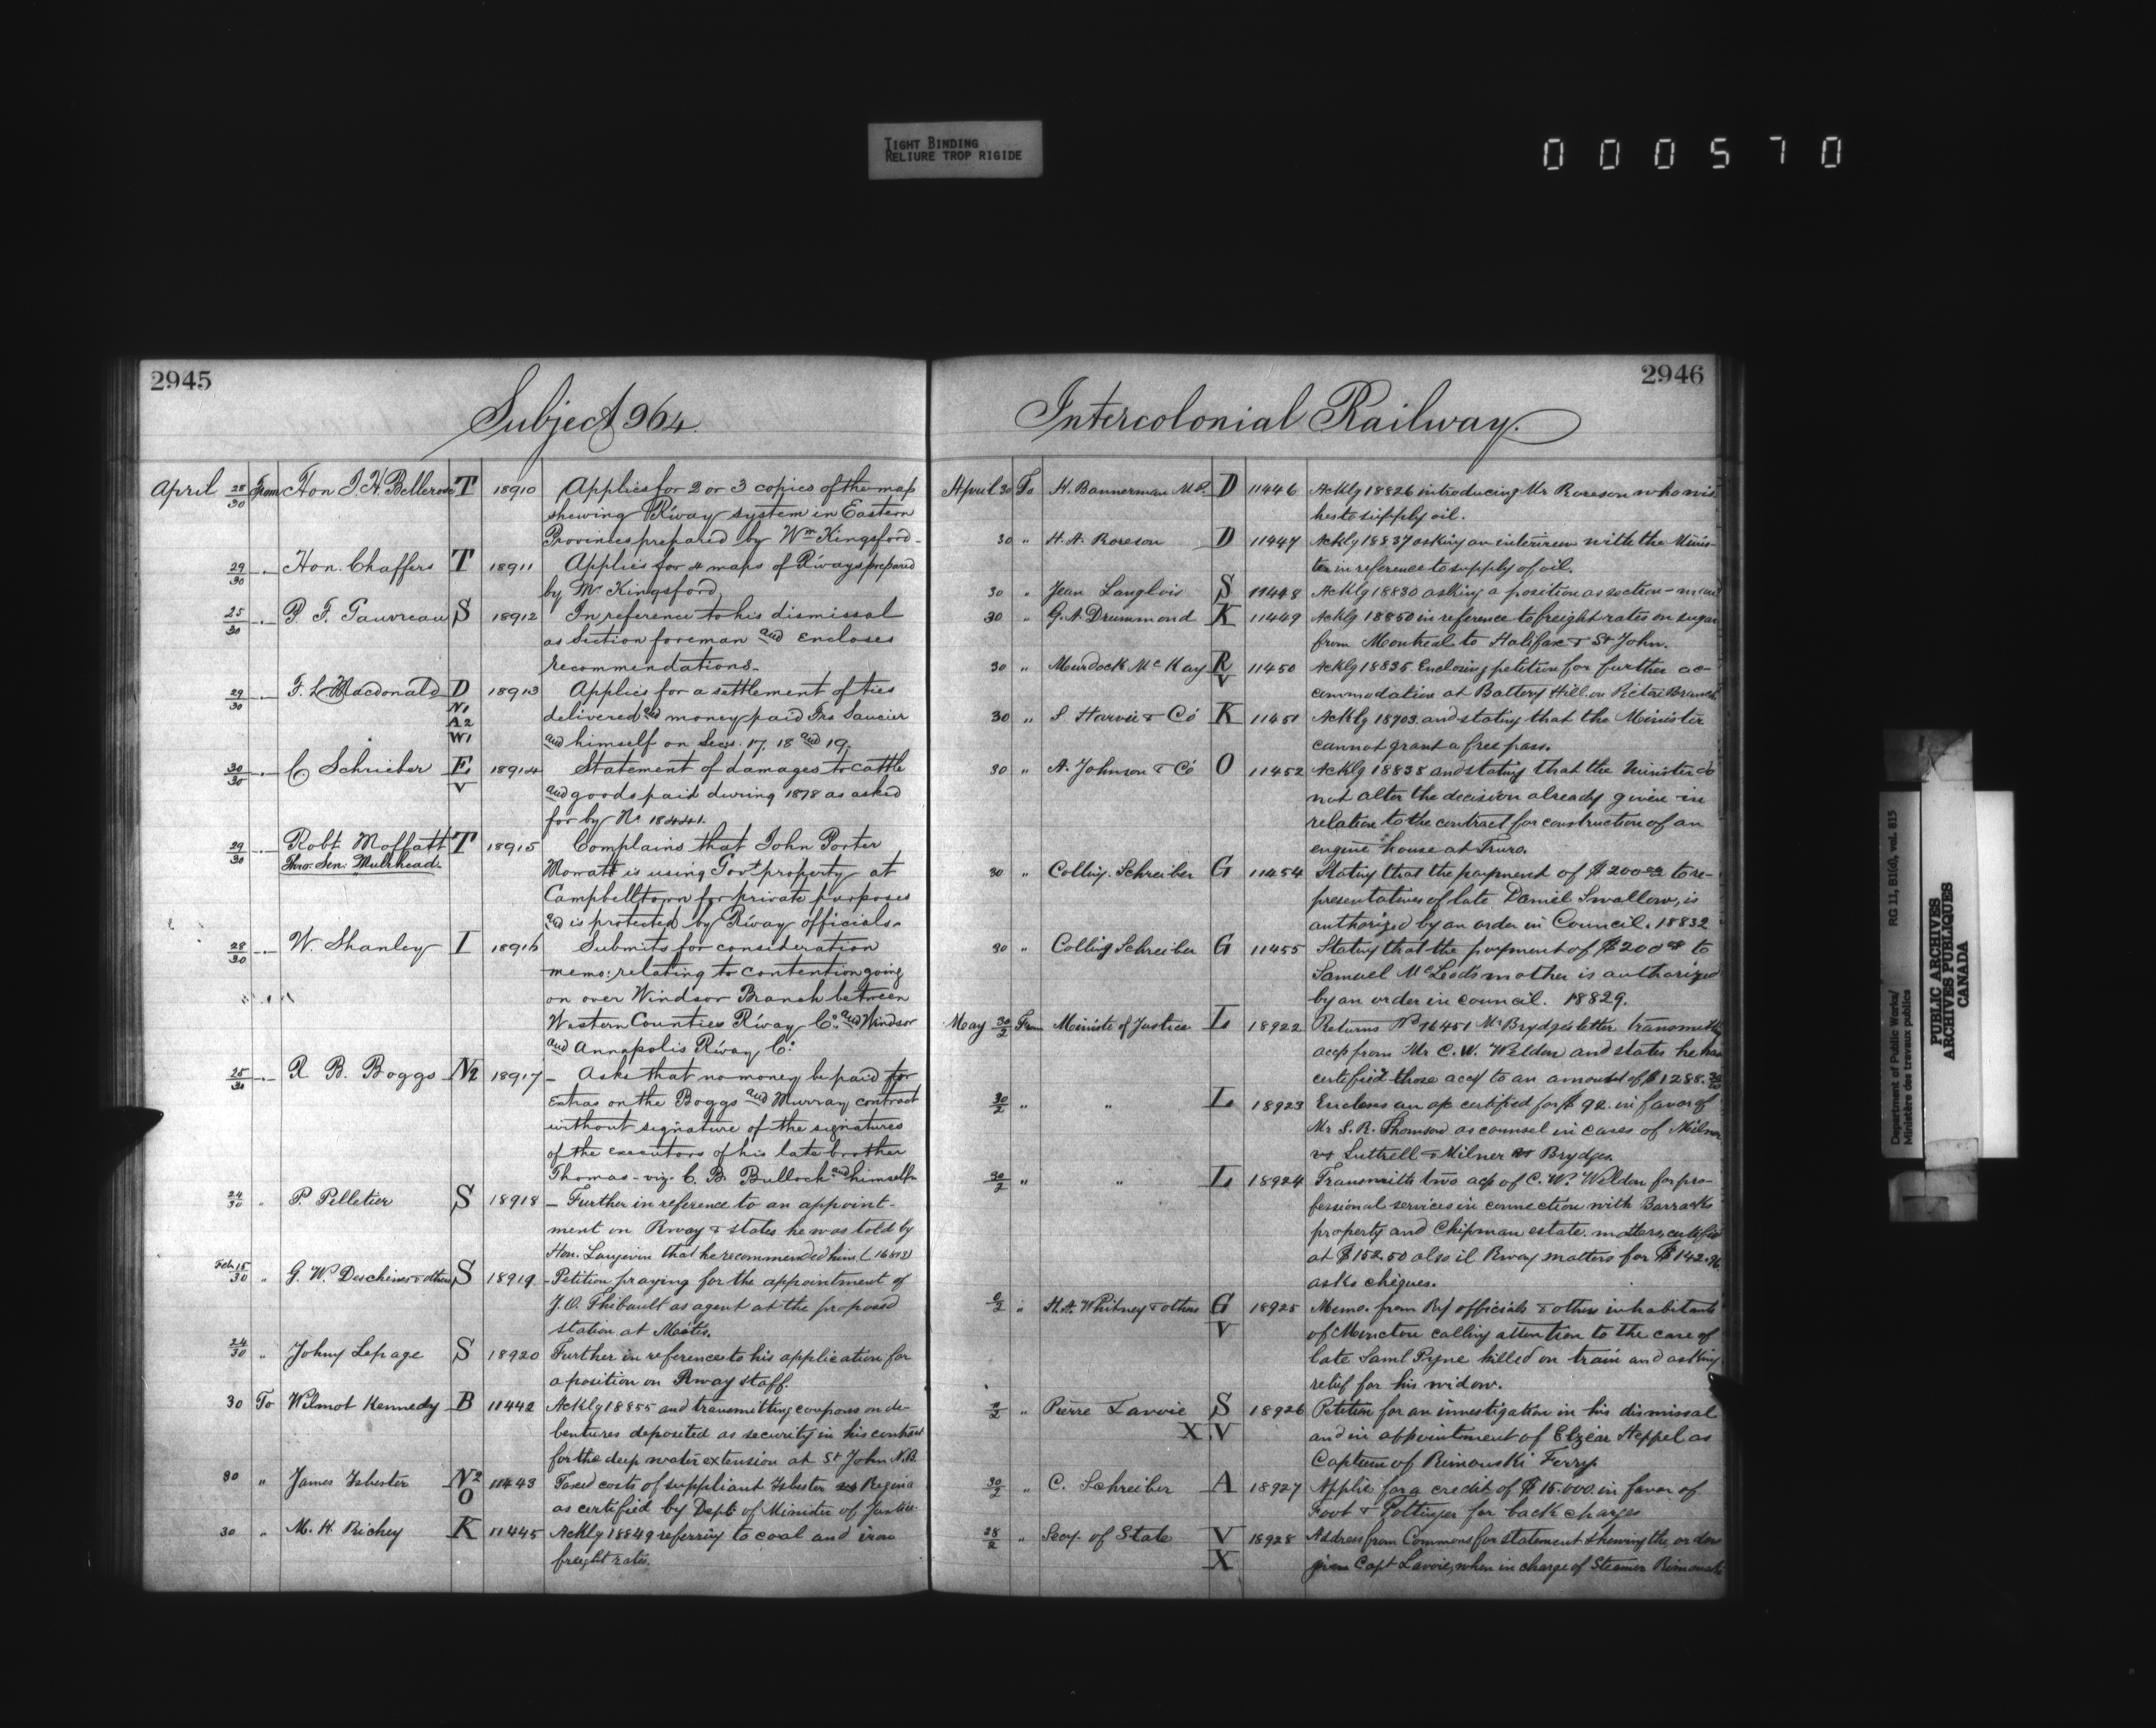 TIGHT BINDING
RELIURE TROP RIGIDE
000570
2945
Subject 964.
April 28/30 From Hon J. H. Bellerose T 18910 Applies for 2 or 3 copies of the map
shewing R'way system in Eastern
Provinces prepared by Wm Kingsford-
29/30 " Hon. Chaffers T 18911 Applies for 4 maps of R'ways prepared
by Mr Kingsford,
25/30 " P. F. Gauvreau S 18912 In reference to his dismissal
as Section foreman and encloses
recommendations-
29/30 " F. L. Macdonald D 18913 Applies for a settlement of ties
N1 delivered and money paid Frs Saucier
A2
W1 and himself on Secs. 17, 18 and 19.
30/30 " C Schrieber E 18914 Statement of damages to cattle
V and goods paid during 1878 as asked
for by No 18441.
29/30 " Robt Moffatt T 18915 Complains that John Porter
Thro. Sen: Muirhead. Mowatt is using Govt property at
Campbelltown for private purposes
and is protected by R'way officials-
28/30 " W. Shanley I 18916 Submits for consideration
memo: relating to contention going
on over Windsor Branch between
Western Counties R'way Co. and Windsor
and Annapolis R'way Co:
25/30 " R. B. Boggs N2 18917 - Asks that no money be paid for
Extras on the Boggs and Murray contract
without signature of the signatures
of the executors of his late brother
Thomas - viz. C. B. Bullock and himself-
24/30 " P. Pelletier S 18918 - Further in reference to an appoint-
ment on Rway & states he was told by
Hon. Langevin that he recommended him (16813)
Feb 15/30 " G. W. Deschenes & others S 18919 - Petition praying for the appointment of
J. O. Thibault as agent at the proposed
station at Metis.
24/30 " Johny Lepage S 18920 Further in reference to his application for
a position on Rway staff.
30 To Wilmot Kennedy B 11442 Acklg 18855 and transmitting coupons on de-
bentures deposited as security in his contract
for the deep water extension at St John N.B.
30 " James Isbester N2 11443 Taxed costs of suppliant Isbester vs Regina
O as certified by Dept of Minister of Justice.
30 " M. H. Richey K 11445 Acklg 18849 referring to coal and iron
freight rates.
2946
Intercolonial Railway.
April 30 To H. Bannerman M.P. D 11446 Acklg 18826 introducing Mr Roreson who wis
hes to supply oil.
30 " H. A. Roreson D 11447 Acklg 18837 asking an interview with the Minis-
ter in reference to supply of oil.
30 " Jean Langlois S 11448 Acklg 18830 asking a position as section-man
30 " G. A. Drummond K 11449 Acklg 18850 in reference to freight rates on sugar
from Montreal to Halifax & St John.
30 " Murdock McKay R 11450 Acklg 18835 Enclosing petition for further ac-
V commodation at Battery Hill on Pictou Branch
30 " S. Harvie & Co K 11451 Acklg 18703 and stating that the Minister
cannot grant a free pass.
30 " A. Johnson & Co O 11452 Acklg 18838 and stating that the Minister do
not alter the decision already given in
relation to the contract for construction of an
engine house at Truro.
30 " Colling. Schreiber G 11454 Stating that the payment of $200.00 to re-
presentatives of late Daniel Swallow, is
authorized by an order in Council. 18832
30 " Colling Schreiber G 11455 Stating that the payment of $200.00 to
Samuel McLeod's mother is authorized
by an order in council. 18829.
May 30/2 From Ministe of Justice L 18922 Returns No 16451 Mr Brydges letter transmitting
accts from Mr C. W. Weldon and states he has
certified those accts to an amount of $1288.
30/2 " " L 18923 Encloses an a/c certified for $92. in favor of
Mr S. R. Thomson as counsel in cases of Milner
vs Luttrell & Milner vs Brydges.
30/2 " " L 18924 Transmits two accts of C. W. Weldon for pro-
fessional services in connection with Barracks
property and Chipman estate matters certified
at $152.50 also il Rway matters for $142.
asks cheques.
2/2 " H. A. Whitney & others G 18925 Memo. from Ry officials & others inhabitants
V of Moncton calling attention to the case of
late Saml Pyne killed on train and asking
relief for his widow.
2/2 " Pierre Lavoie S 18926 Petition for an investigation in his dismissal
X V and in appointment of Elzéar Heppel as
Captain of Rimouski Ferry.
30/2 " C. Schreiber A 18927 Applies for a credit of $15.000. in favor of
Foot & Pottinger for back charges
28/2 " Secy. of State V 18928 Address from Commons for statement shewing the orders
X given Capt Lavoie, when in charge of Steamer Rimouski
Department of Public Works/ RG 11, B1(d), vol. 815
Ministère des travaux publics
PUBLIC ARCHIVES
ARCHIVES PUBLIQUES
CANADA